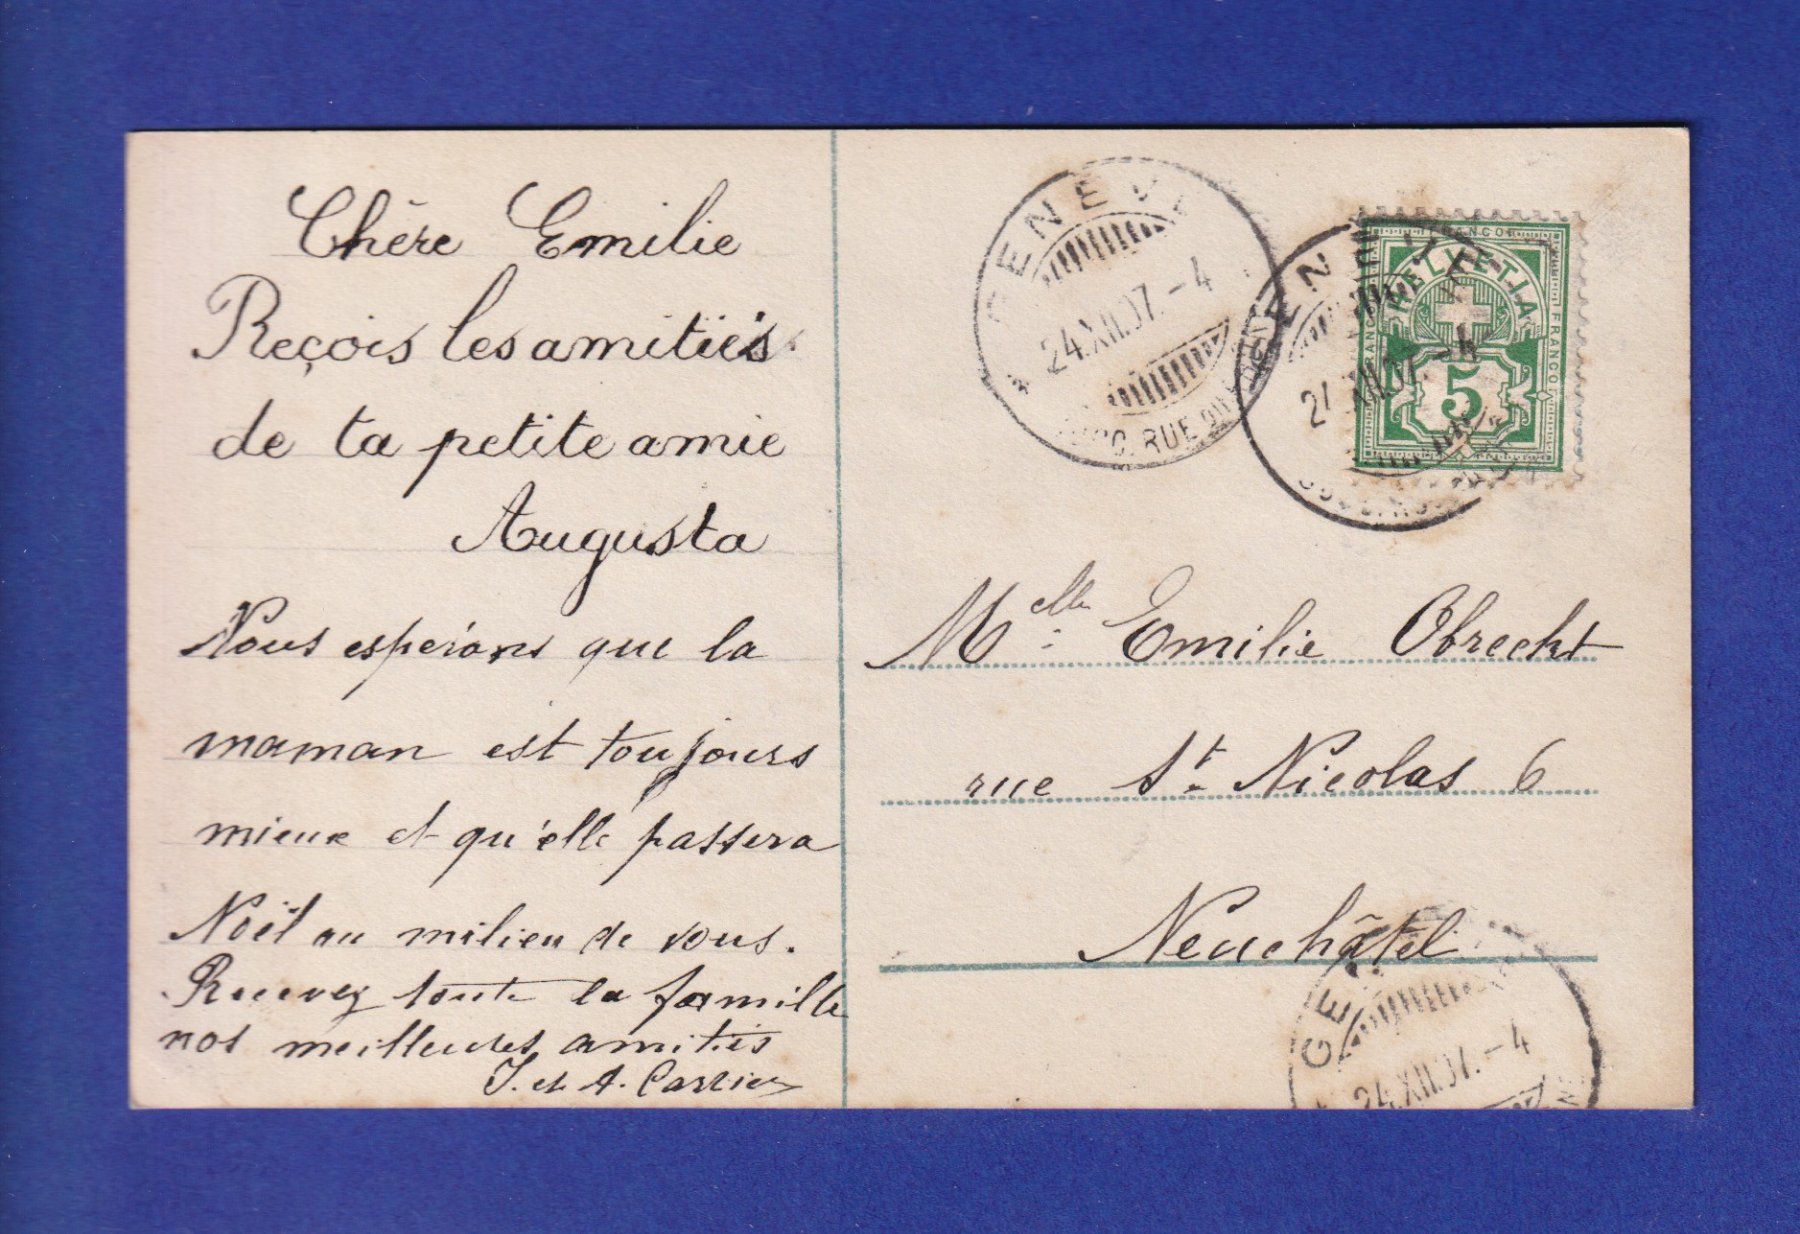 Chère Emilie
Reçois les amitiés
de ta petite amie
Augusta
Nous espérons que la
maman est toujours
mieux et qu'elle passera
Noël au milieu de vous.
Recevez toute la famille
nos meilleures amitiés
J. et A. Cartier
GENEV
24.XII.07.-4
SUCC. RUE DU
FRANCO
HELVETIA
FRANCO
FRANCO
5
24.XII.07.-4
Melle Emilie Obrecht
rue St. Nicolas 6
Neuchâtel
GE
24.XII.07.-4